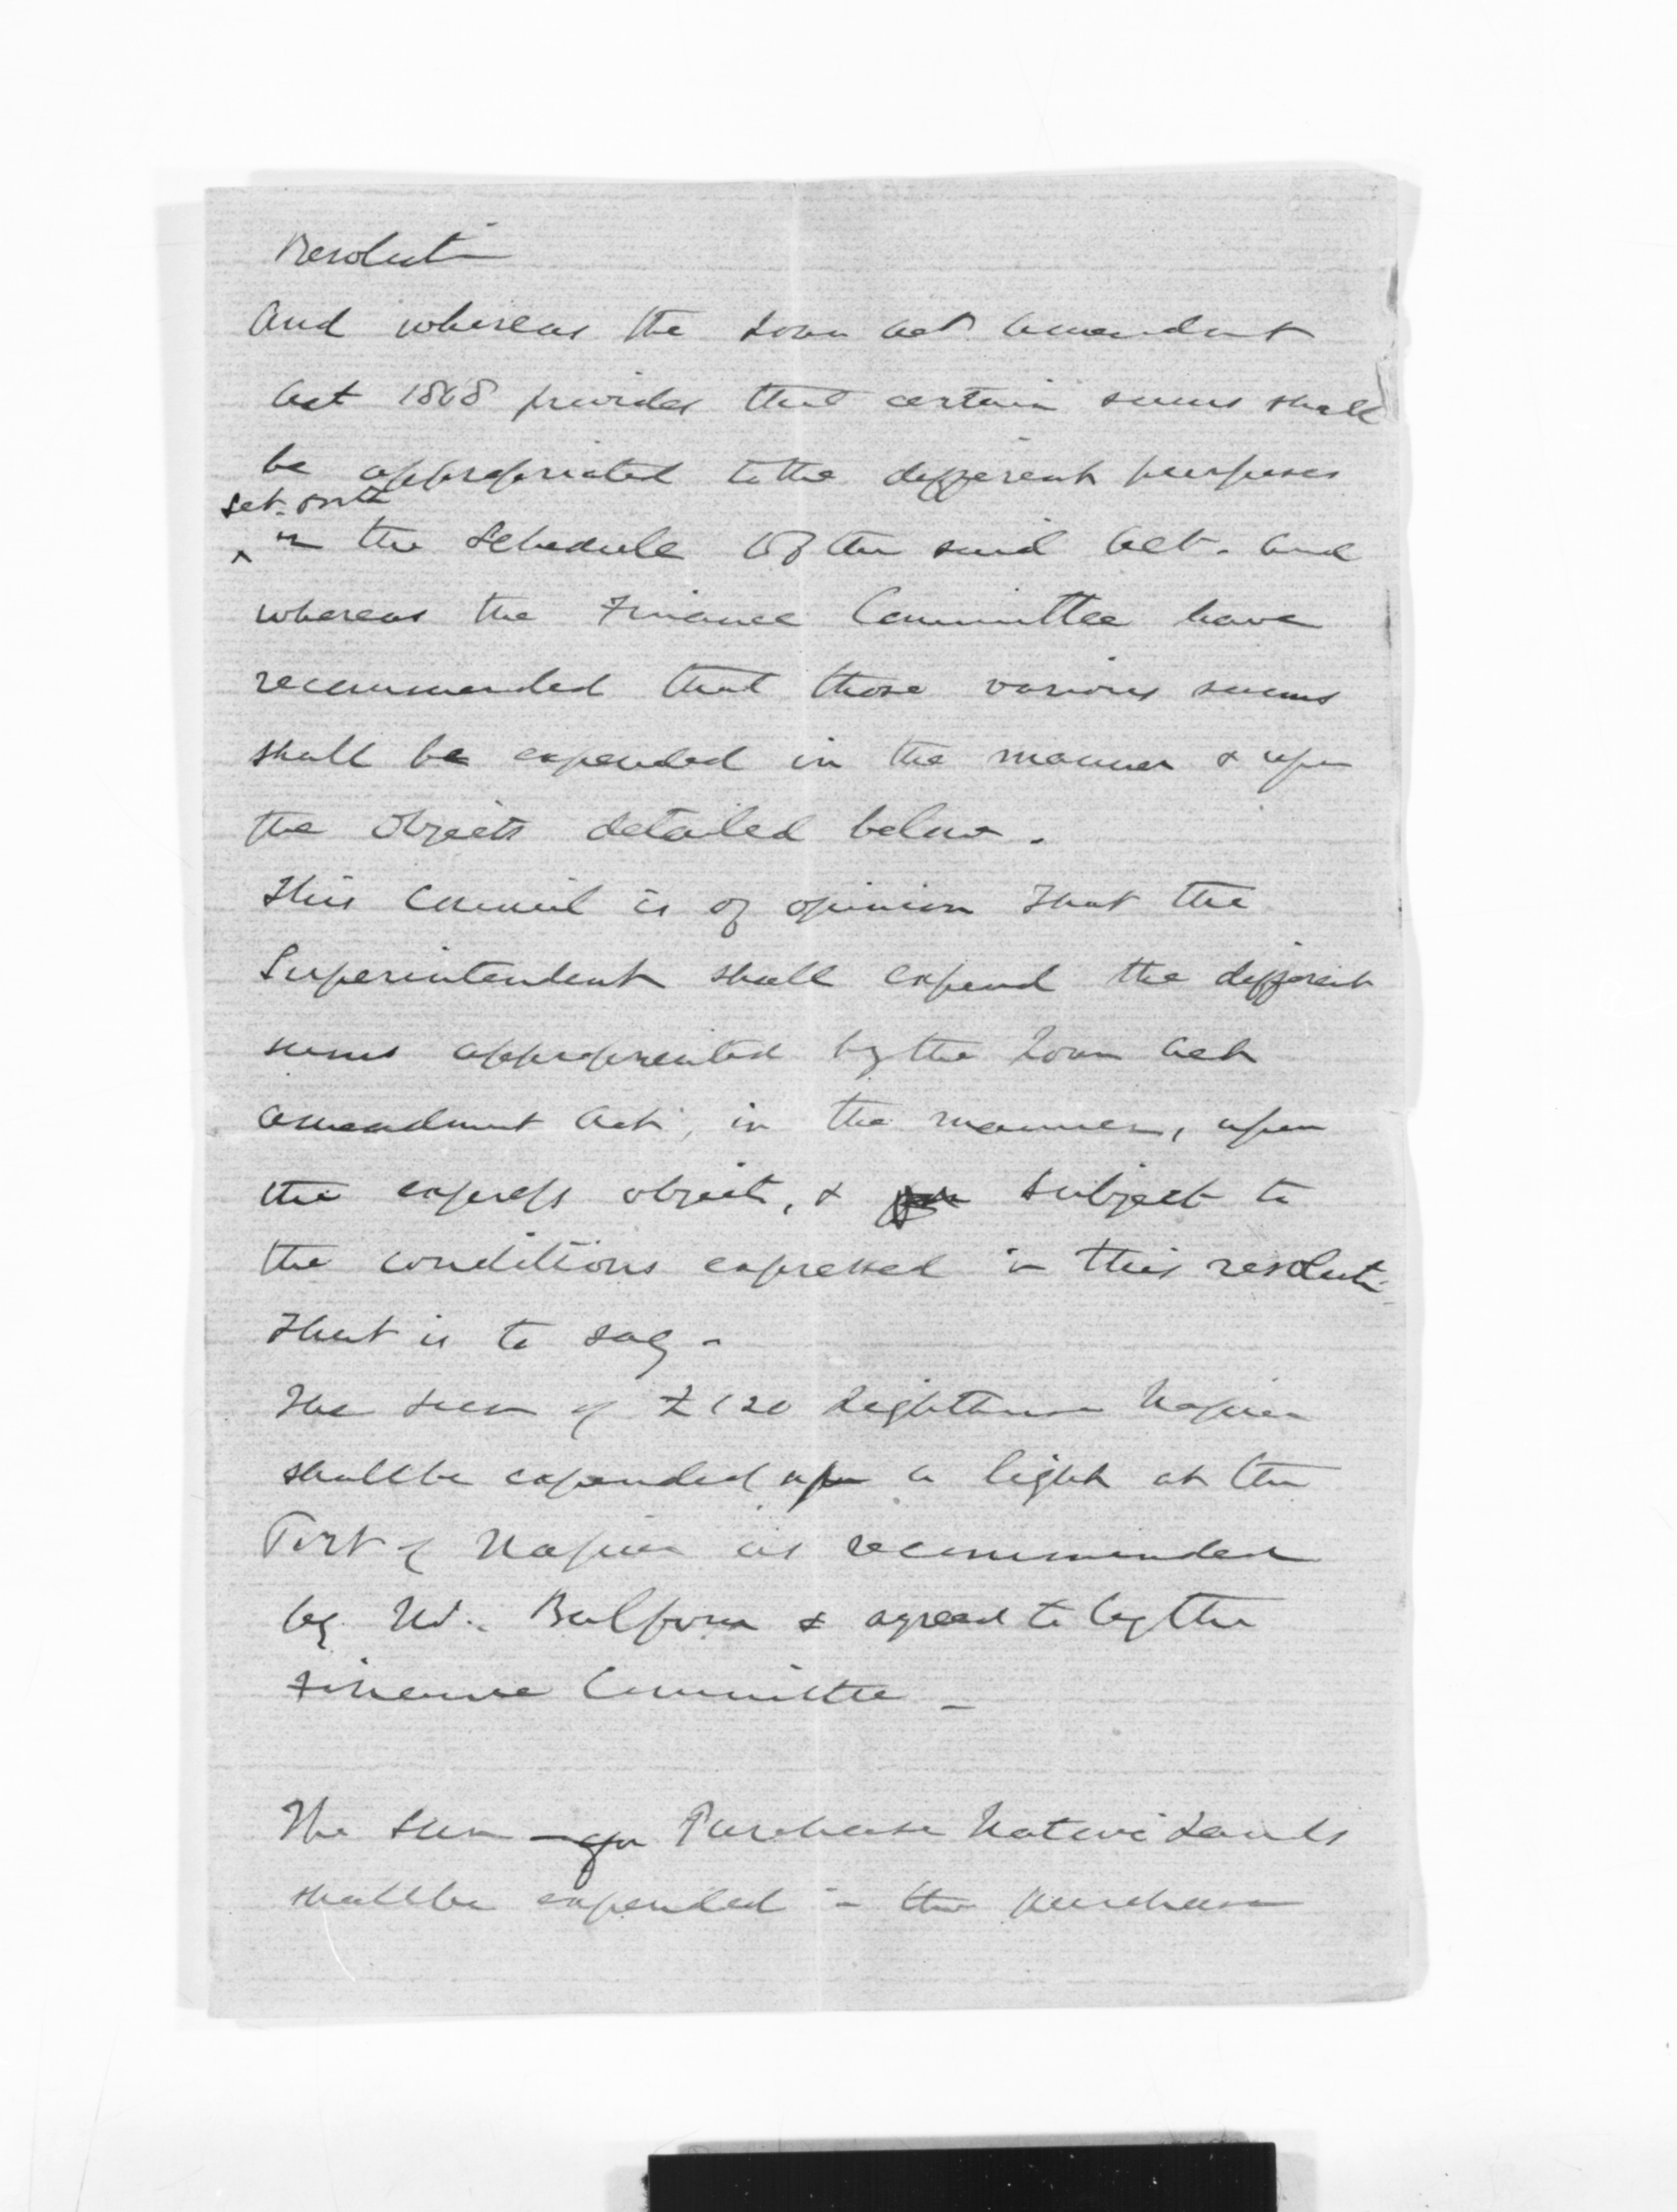 Resolution
And whereas the Loan Act Amendment
Act 1868 provides that certain sums shall
be appropriated to the different purposes
set out
^ in the Schedule of the said Act. And
whereas the Finance Committee have
recommended that those various sums
shall be expended in the manner & upon
the objects detailed below.
This Council is of opinion that the
Superintendent shall expend the different
sums appropriated by the Loan Act
Amendment Act, in the manner, upon
the express objects, & subject to
the conditions expressed in this resolution
that is to say -
The sum of £120 Lighthouse Napier
shall be expended upon a light at the
Port of Napier as recommended
by Mr. Balfour & agreed to by the
Finance Committee -
The sum for Purchase Native Lands
shall be expended in the purchase